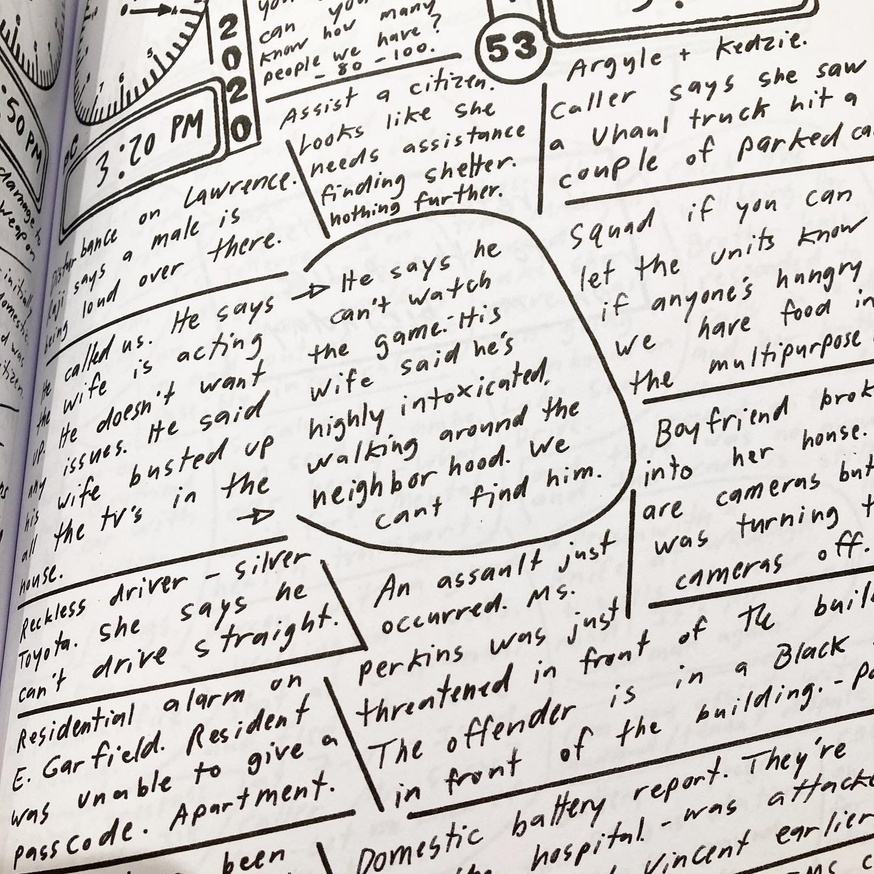 :50 PM
2
0
2
0
3:20 PM
can you
know how many
people we have?
- 80 - 100.
53
Assist a citizen.
Looks like she
needs assistance
finding shelter.
nothing further.
Argyle + Kedzie.
Caller says she saw
a Uhaul truck hit a
couple of parked
on Lawrence.
says a male is
loud over there.
called us. He says
wife is acting
He doesn't want
issues. He said
wife busted up
all the TV's in the
house.
He says he
can't watch
the game. His
wife said he's
highly intoxicated,
walking around the
neighborhood. We
cant find him.
Squad if you can
let the units know
if anyone's hungry
we have food in
the multipurpose
Boyfriend
into her house.
are cameras but
was turning
cameras off.
Reckless driver - silver
Toyota. She says he
can't drive straight.
An assault just
occurred. Ms.
Perkins was just
threatened in front of the
The offender is in a Black
in front of the building. -
Residential alarm on
E. Garfield. Resident
was unable to give a
passcode. Apartment.
Domestic battery report. They're
hospital. - was
Vincent earlier
been